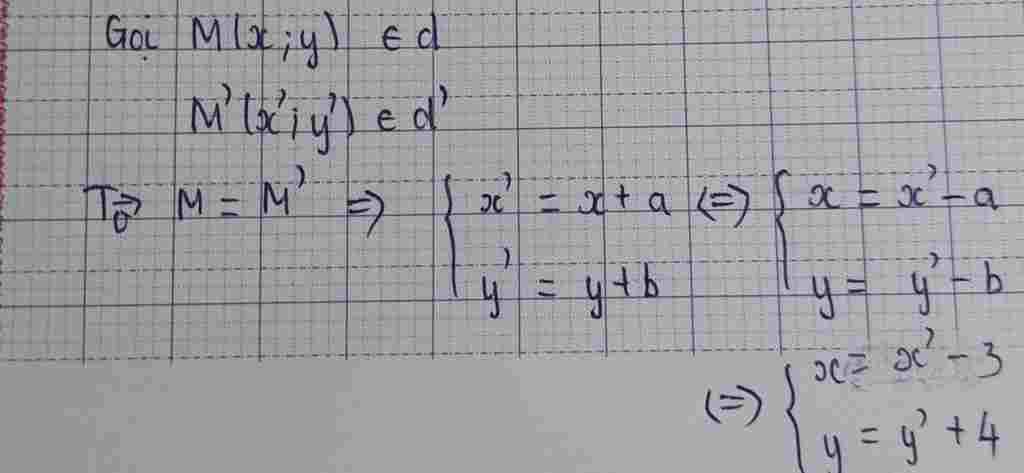 Gọi M(x;y) ∈ d
M'(x';y') ∈ d'
T_{\vec{v}} M = M' => { x' = x + a <=> { x = x' - a
y' = y + b y = y' - b
<=> { x = x' - 3
y = y' + 4